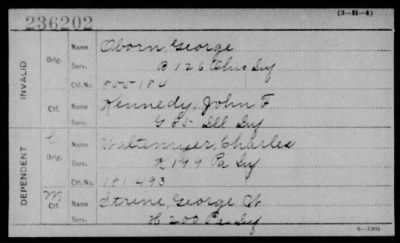 (3-H-4)
236202
INVALID
Orig. Name Oborn George
Serv. B 126 Ohio Inf
Ctf. No. 855184
Ctf. Name Kennedy, John F
Serv. G 85 Ill Inf
DEPENDENT
C
Orig. Name Waltemyer, Charles
Serv. K 199 Pa Inf
Ctf. No. 181493
M
Ctf. Name Strine, George W
Serv. H 200 Pa Inf